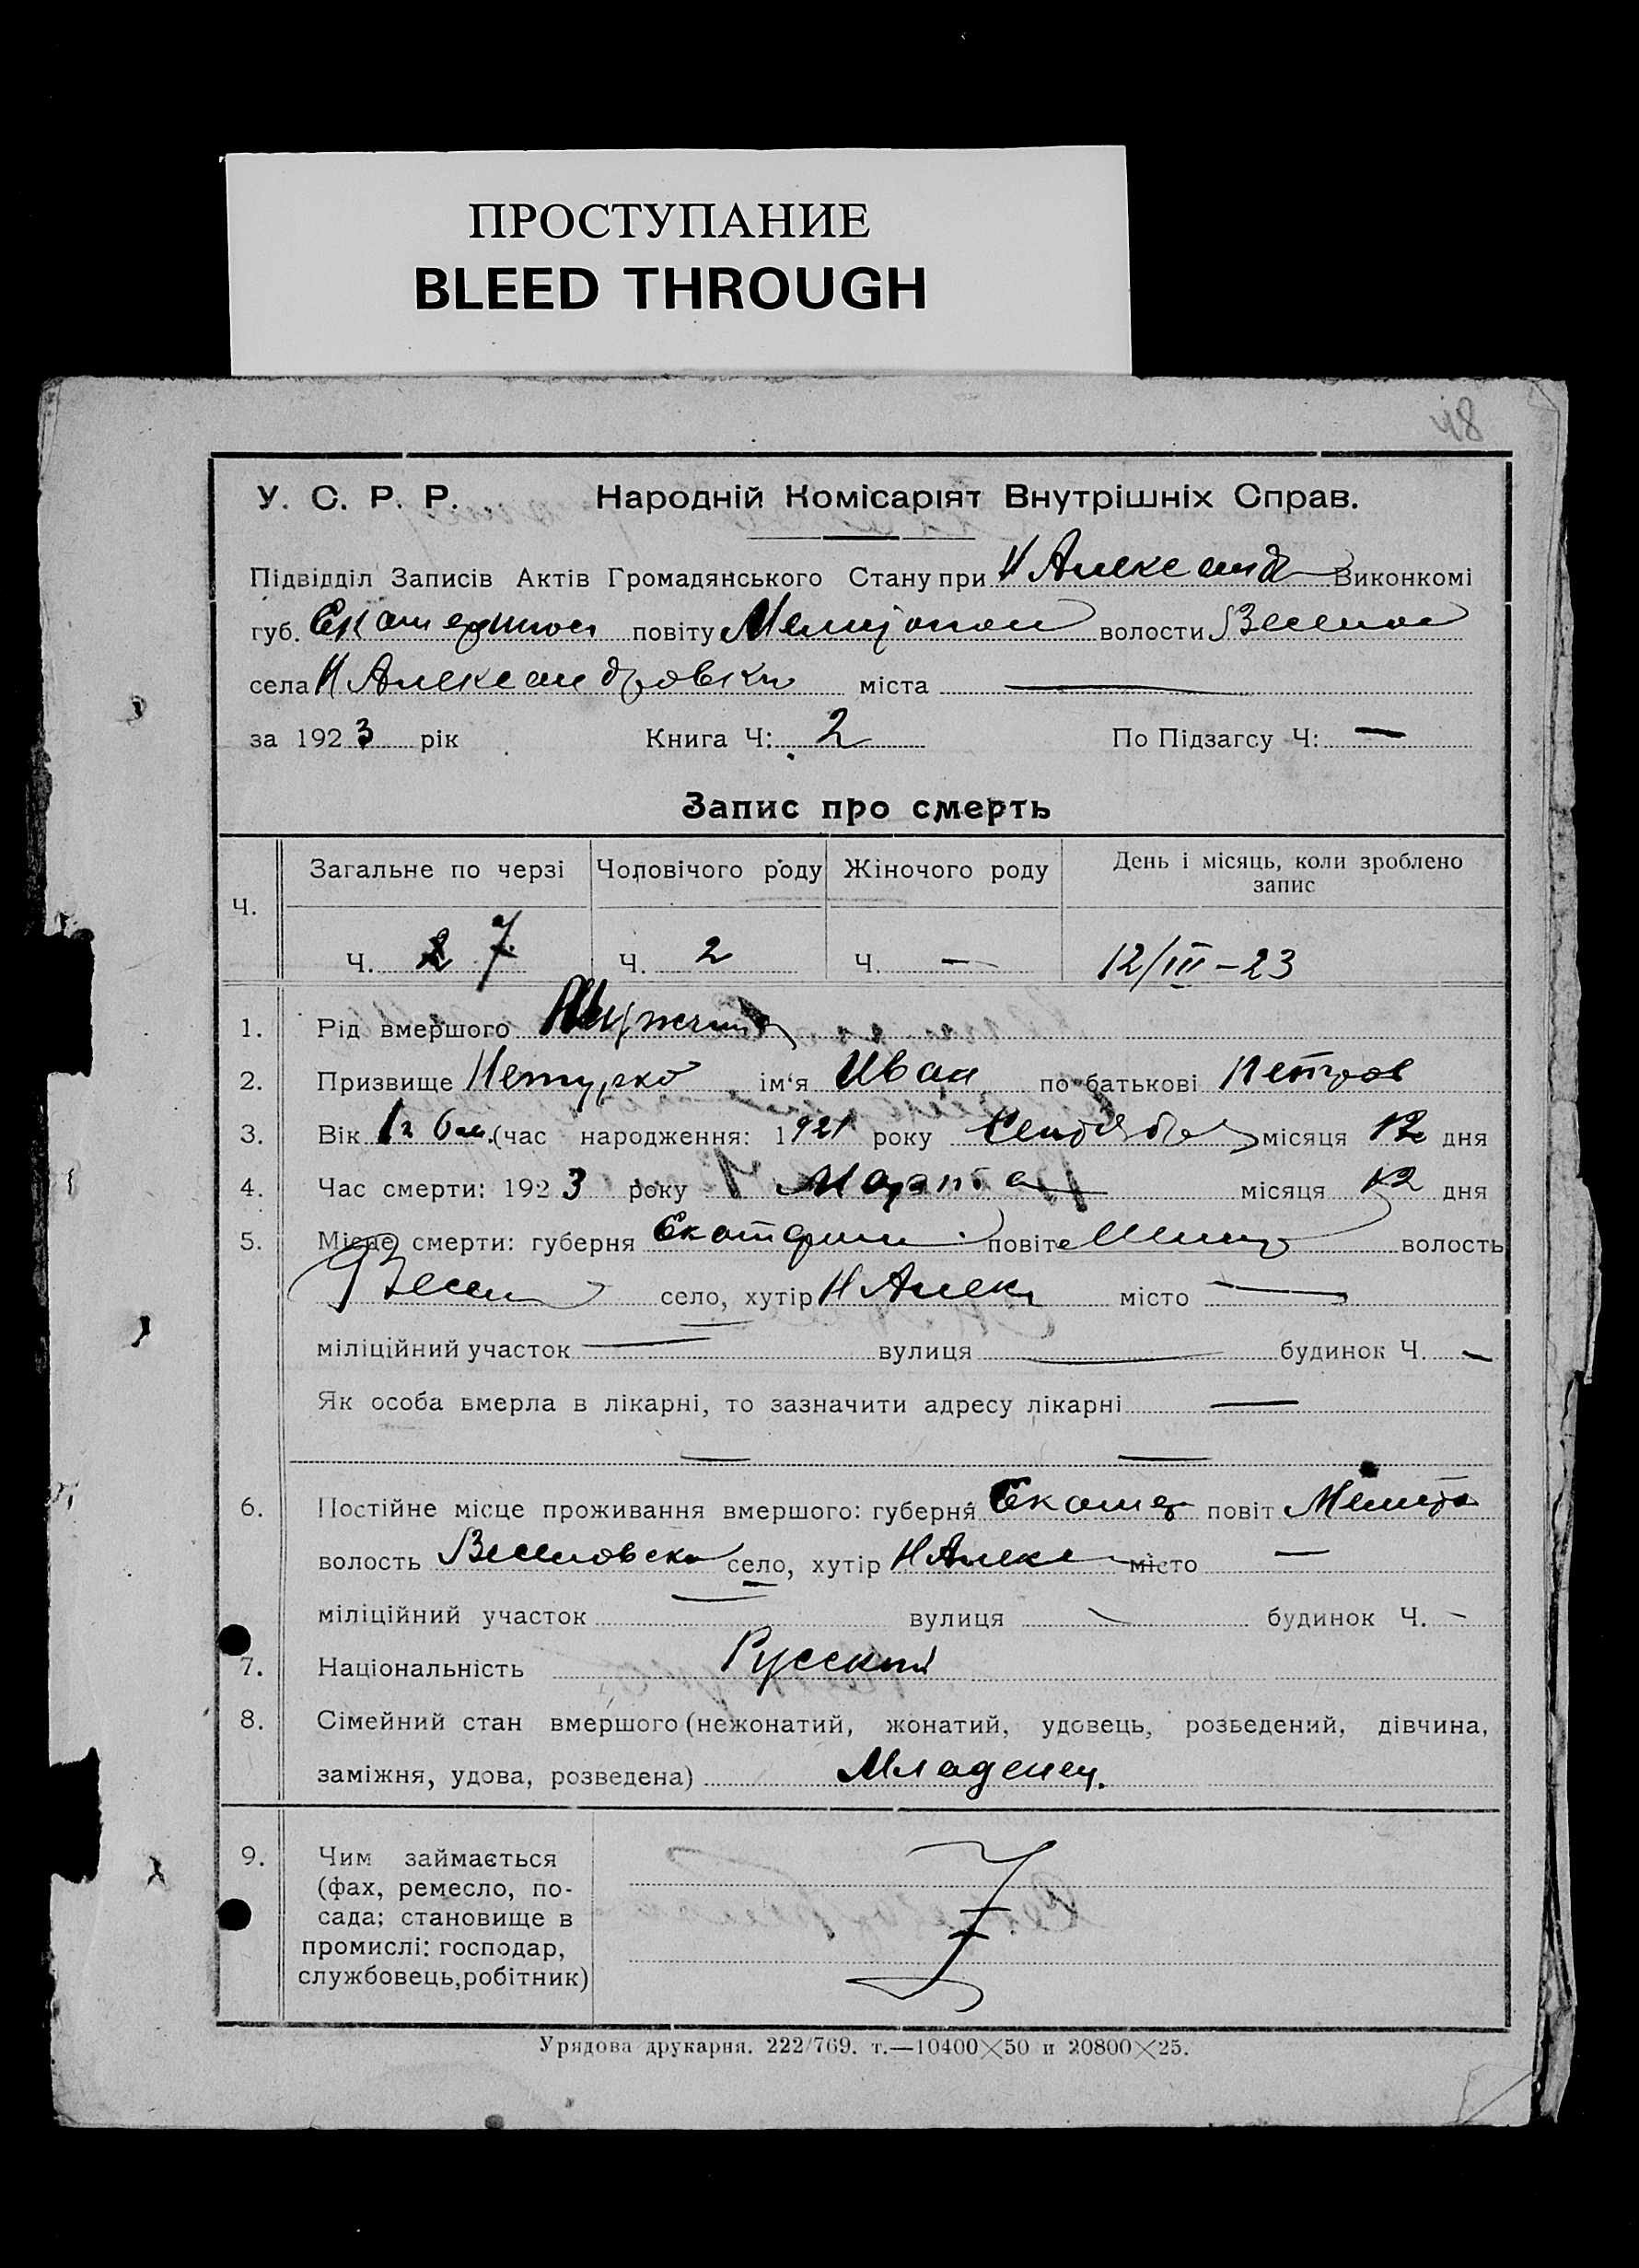 ПРОСТУПАНИЕ
BLEED THROUGH
48
У. С. Р. Р. Народній Комісаріят Внутрішніх Справ.
Підвідділ Записів Актів Громадянського Стану при Н Александ Виконкомі
губ. Екатеринос повіту Мелитопол волости Весело
села Н Александровки міста —
за 1923 рік Книга Ч: 2 По Підзагсу Ч: —
Запис про смерть
Ч. Загальне по черзі Чоловічого роду Жіночого роду День і місяць, коли зроблено запис
Ч. 7 Ч. 2 Ч. — 12/III-23
1. Рід вмершого Мужчина
2. Призвище ім'я Иван по батькові Петров
3. Вік 1 г 6 м. (час народження: 1921 року Сентября місяця 12 дня
4. Час смерти: 1923 року Марта місяця 12 дня
5. Місце смерти: губерня Екатерин повіт Мелит волость
Весел село, хутір Н Алек місто —
міліційний участок — вулиця — будинок Ч. —
Як особа вмерла в лікарні, то зазначити адресу лікарні —
— —
6. Постійне місце проживання вмершого: губерня Екатер повіт Мелито
волость Веселовска село, хутір Н Алекс місто —
міліційний участок — вулиця — будинок Ч. —
7. Національність Русский
8. Сімейний стан вмершого (нежонатий, жонатий, удовець, розведений, дівчина,
заміжня, удова, розведена) Младенец.
9. Чим займається
(фах, ремесло, по-
сада; становище в
промислі: господар,
службовець, робітник)
Урядова друкарня. 222/769. т.—10400×50 и 20800×25.